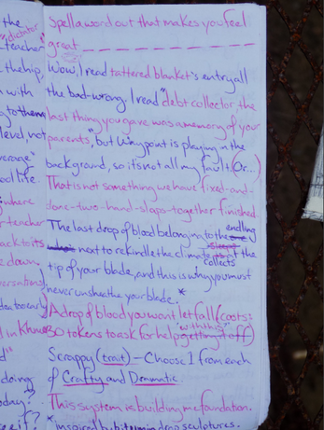 Spell a word out that makes you feel
great
Wow, I read tattered blanket's entry all
the bad-wrong. I read "debt collector the
last thing you gave was a memory of your
parents", but Whypoint is playing in the
background, so it's not all my fault (Or...)
That is not something we have fixed-and-
done-two-hand-slaps-together finished.
The last drop of blood belonging to the endling
next to rekindle the climate of the
collects
tip of your blade, and this is why you must
never unsheathe your blade. *
A drop of blood you won't let fall (costs:
30 tokens to ask for help with this
Scrappy (trait) - Choose 1 from each
of Crafty and Dommatic
This system is building me foundation.
* inspired by bitumin drop sculptures.
the
teacher
the hip,
n with
g to them
level, not
ool life.
where
teacher
ack to its
e down.
in Khno
doing
oday?
see if?